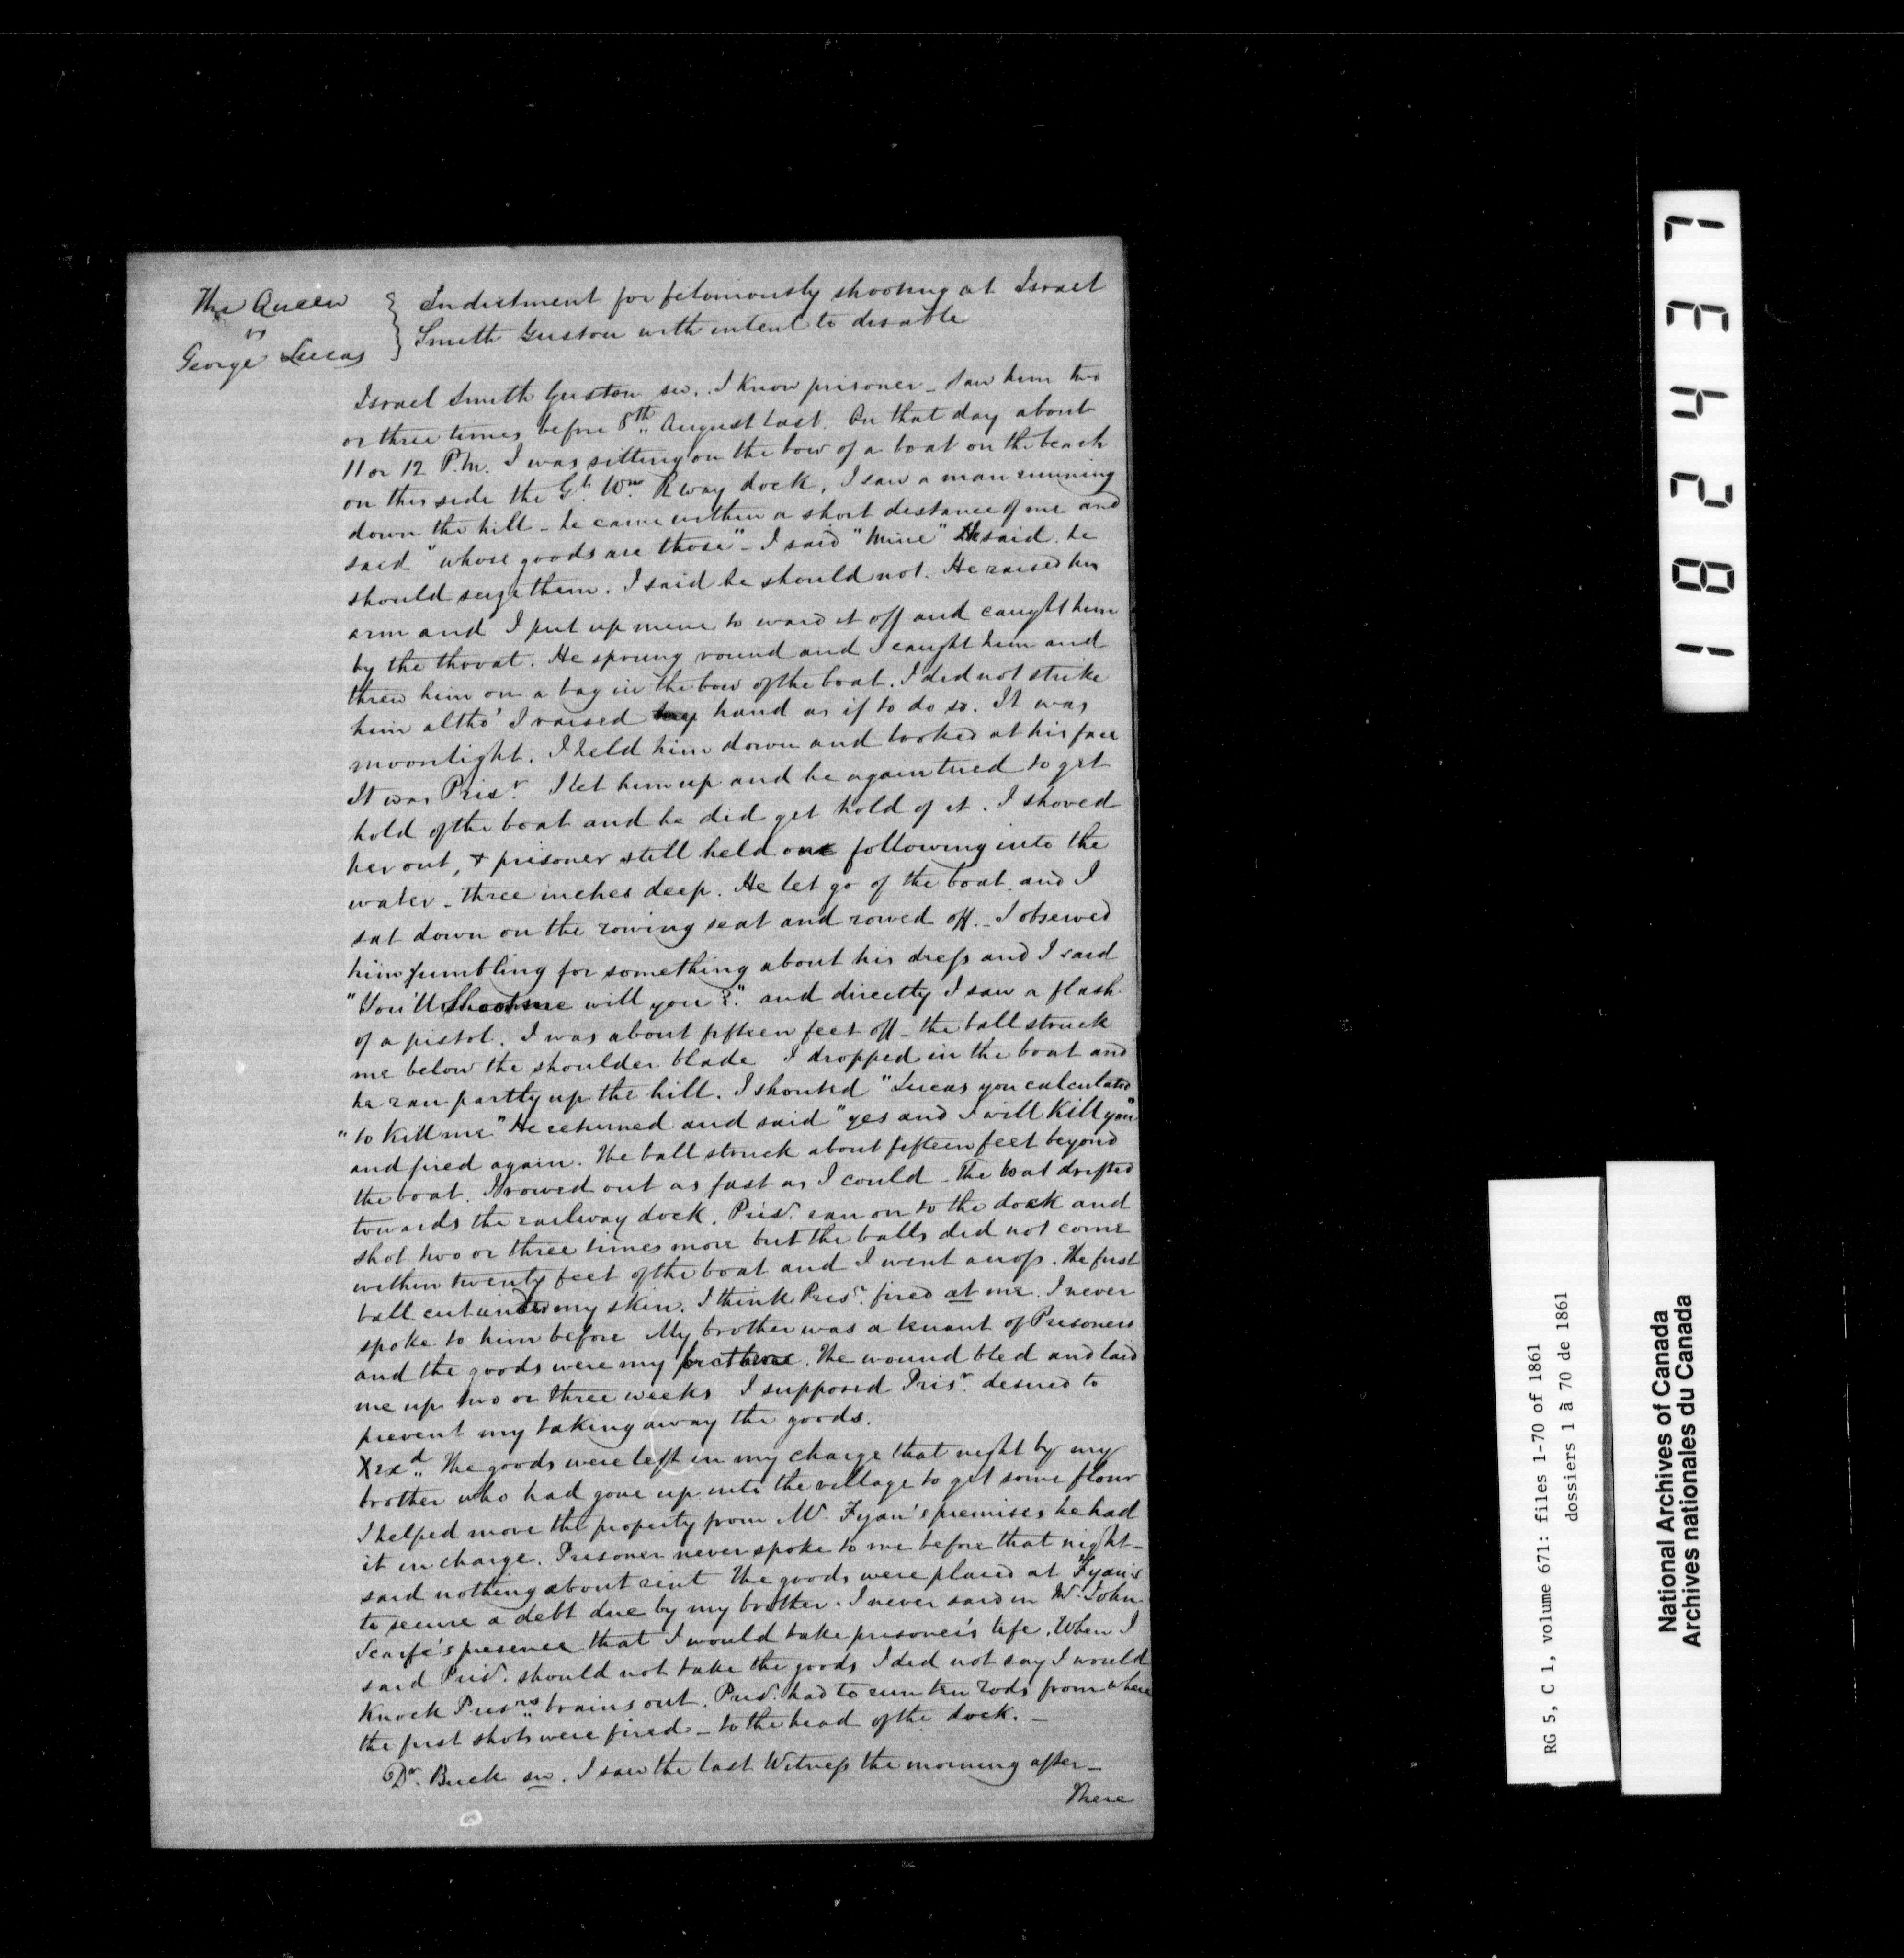 The Queen
vs
George Lucas
Indictment for feloniously shooting at Israel
Smith Guston with intent to disable
Israel Smith Guston sw. I know prisoner - saw him two
or three times before 8th August last. On that day about
11 or 12 P.M. I was sitting on the bow of a boat on the beach
on this side the Gt. Wn. Rway dock, I saw a man running
down the hill - he came within a short distance of me and
said "whose goods are those" - I said "mine" He said he
should seize them. I said he should not. He raised his
arm and I put up mine to ward it off and caught him
by the throat. He sprung round and I caught him and
threw him on a bag in the bow of the boat. I did not strike
him altho' I raised my hand as if to do so. It was
moonlight. I held him down and looked at his face
It was Prisr. I let him up and he again tried to get
hold of the boat and he did get hold of it. I shoved
her out, & prisoner still held on following into the
water - three inches deep. He let go of the boat and I
sat down on the rowing seat and rowed off. - I observed
him fumbling for something about his dress and I said
"You'll shoot me will you?" and directly I saw a flash
of a pistol. I was about fifteen feet off - the ball struck
me below the shoulder blade I dropped in the boat and
he ran partly up the hill. I shouted "Lucas you calculated
"to kill me" He returned and said "yes and I will kill you"
and fired again. The ball struck about fifteen feet beyond
the boat. I rowed out as fast as I could - The boat drifted
towards the railway dock. Prisr. ran on to the dock and
shot two or three times more but the balls did not come
within twenty feet of the boat and I went across. The first
ball cut under my skin. I think Prisr. fired at me. I never
spoke to him before My brother was a tenant of Prisoners
and the goods were my brothers. The wound bled and laid
me up two or three weeks I supposed Prisr. desired to
prevent my taking away the goods.
Xexd. The goods were left in my charge that night by my
brother who had gone up into the village to get some flour
I helped move the property from Mr. Fyan's premises he had
it in charge. Prisoner never spoke to me before that night -
said nothing about rent The goods were placed at Fyan's
to secure a debt due by my brother. I never said in Mr. John
Scarfe's presence that I would take prisoner's life. When I
said Prisr. should not take the goods I did not say I would
knock Prisrs. brains out. Prisr. had to run ten rods from where
the first shots were fired - to the head of the dock. -
Dr. Buck sw. I saw the last Witness the morning after -
There
1824437
RG 5, C 1, volume 671: files 1-70 of 1861
dossiers 1 à 70 de 1861
National Archives of Canada
Archives nationales du Canada